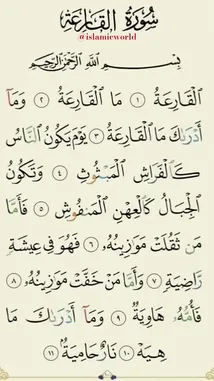 سُورَةُ القَارِعَةِ
@islamicworld
بِسْمِ اللَّهِ الرَّحْمَٰنِ الرَّحِيمِ
ٱلْقَارِعَةُ ١ مَا ٱلْقَارِعَةُ ٢ وَمَآ
أَدْرَىٰكَ مَا ٱلْقَارِعَةُ ٣ يَوْمَ يَكُونُ ٱلنَّاسُ
كَٱلْفَرَاشِ ٱلْمَبْثُوثِ ٤ وَتَكُونُ
ٱلْجِبَالُ كَٱلْعِهْنِ ٱلْمَنفُوشِ ٥ فَأَمَّا
مَن ثَقُلَتْ مَوَٰزِينُهُۥ ٦ فَهُوَ فِى عِيشَةٍ
رَّاضِيَةٍ ٧ وَأَمَّا مَنْ خَفَّتْ مَوَٰزِينُهُۥ ٨
فَأُمُّهُۥ هَاوِيَةٌ ٩ وَمَآ أَدْرَىٰكَ مَا
هِيَهْ ١٠ نَارٌ حَامِيَةٌۢ ١١